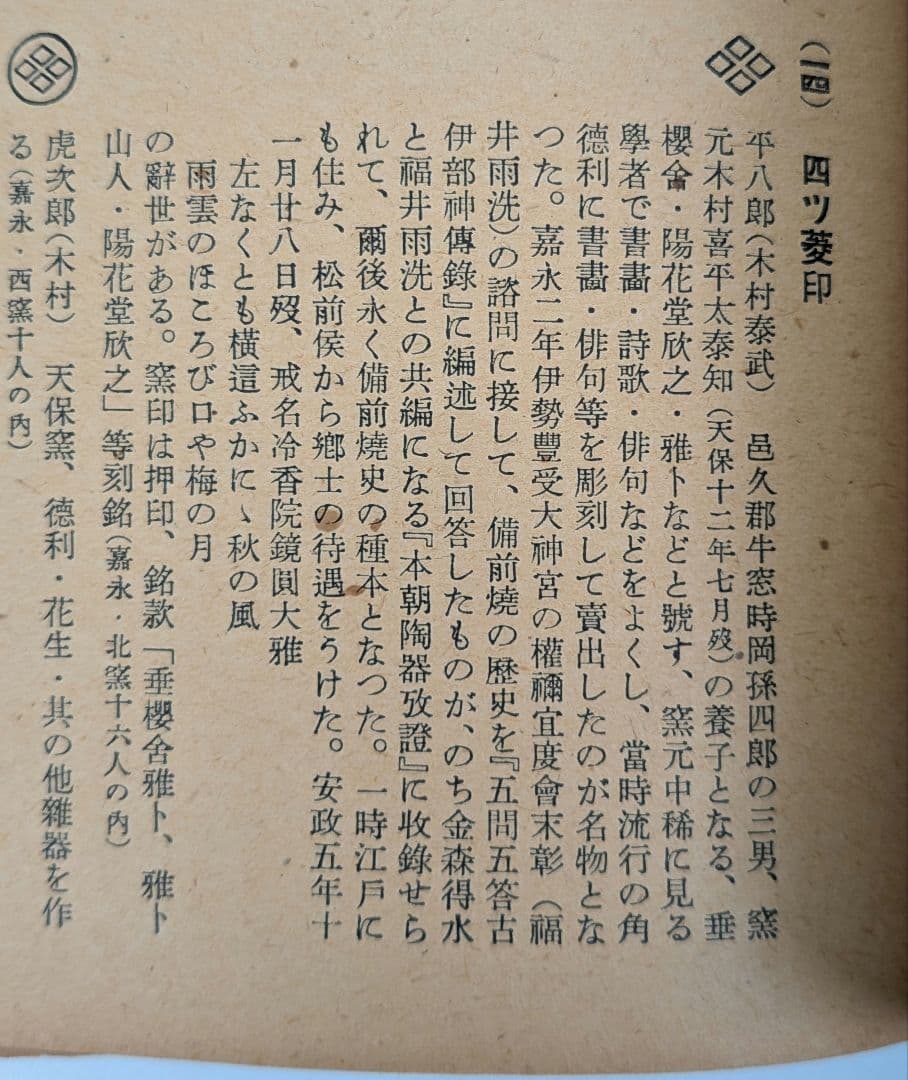 (一四) 四ツ菱印
平八郎(木村泰武) 邑久郡牛窓時岡孫四郎の三男、窯
元木村喜平太泰知(天保十二年七月歿)の養子となる、垂
櫻舎・陽花堂欣之・雅卜などと號す、窯元中稀に見る
學者で書畫・詩歌・俳句などをよくし、當時流行の角
德利に書畫・俳句等を彫刻して賣出したのが名物とな
つた。嘉永二年伊勢豐受大神宮の權禰宜度會末彰(福
井雨洗)の諮問に接して、備前燒の歷史を『五問五答古
伊部神傳錄』に編述して回答したものが、のち金森得水
と福井雨洗との共編になる『本朝陶器攷證』に收錄せら
れて、爾後永く備前燒史の種本となつた。一時江戸に
も住み、松前侯から鄕士の待遇をうけた。安政五年十
一月廿八日歿、戒名冷香院鏡圓大雅
左なくとも橫這ふかにヽ秋の風
雨雲のほころび口や梅の月
の辭世がある。窯印は押印、銘款「垂櫻舍雅卜、雅卜
山人・陽花堂欣之」等刻銘(嘉永・北窯十六人の內)
虎次郎(木村) 天保窯、德利・花生・其の他雜器を作
る(嘉永・西窯十人の內)